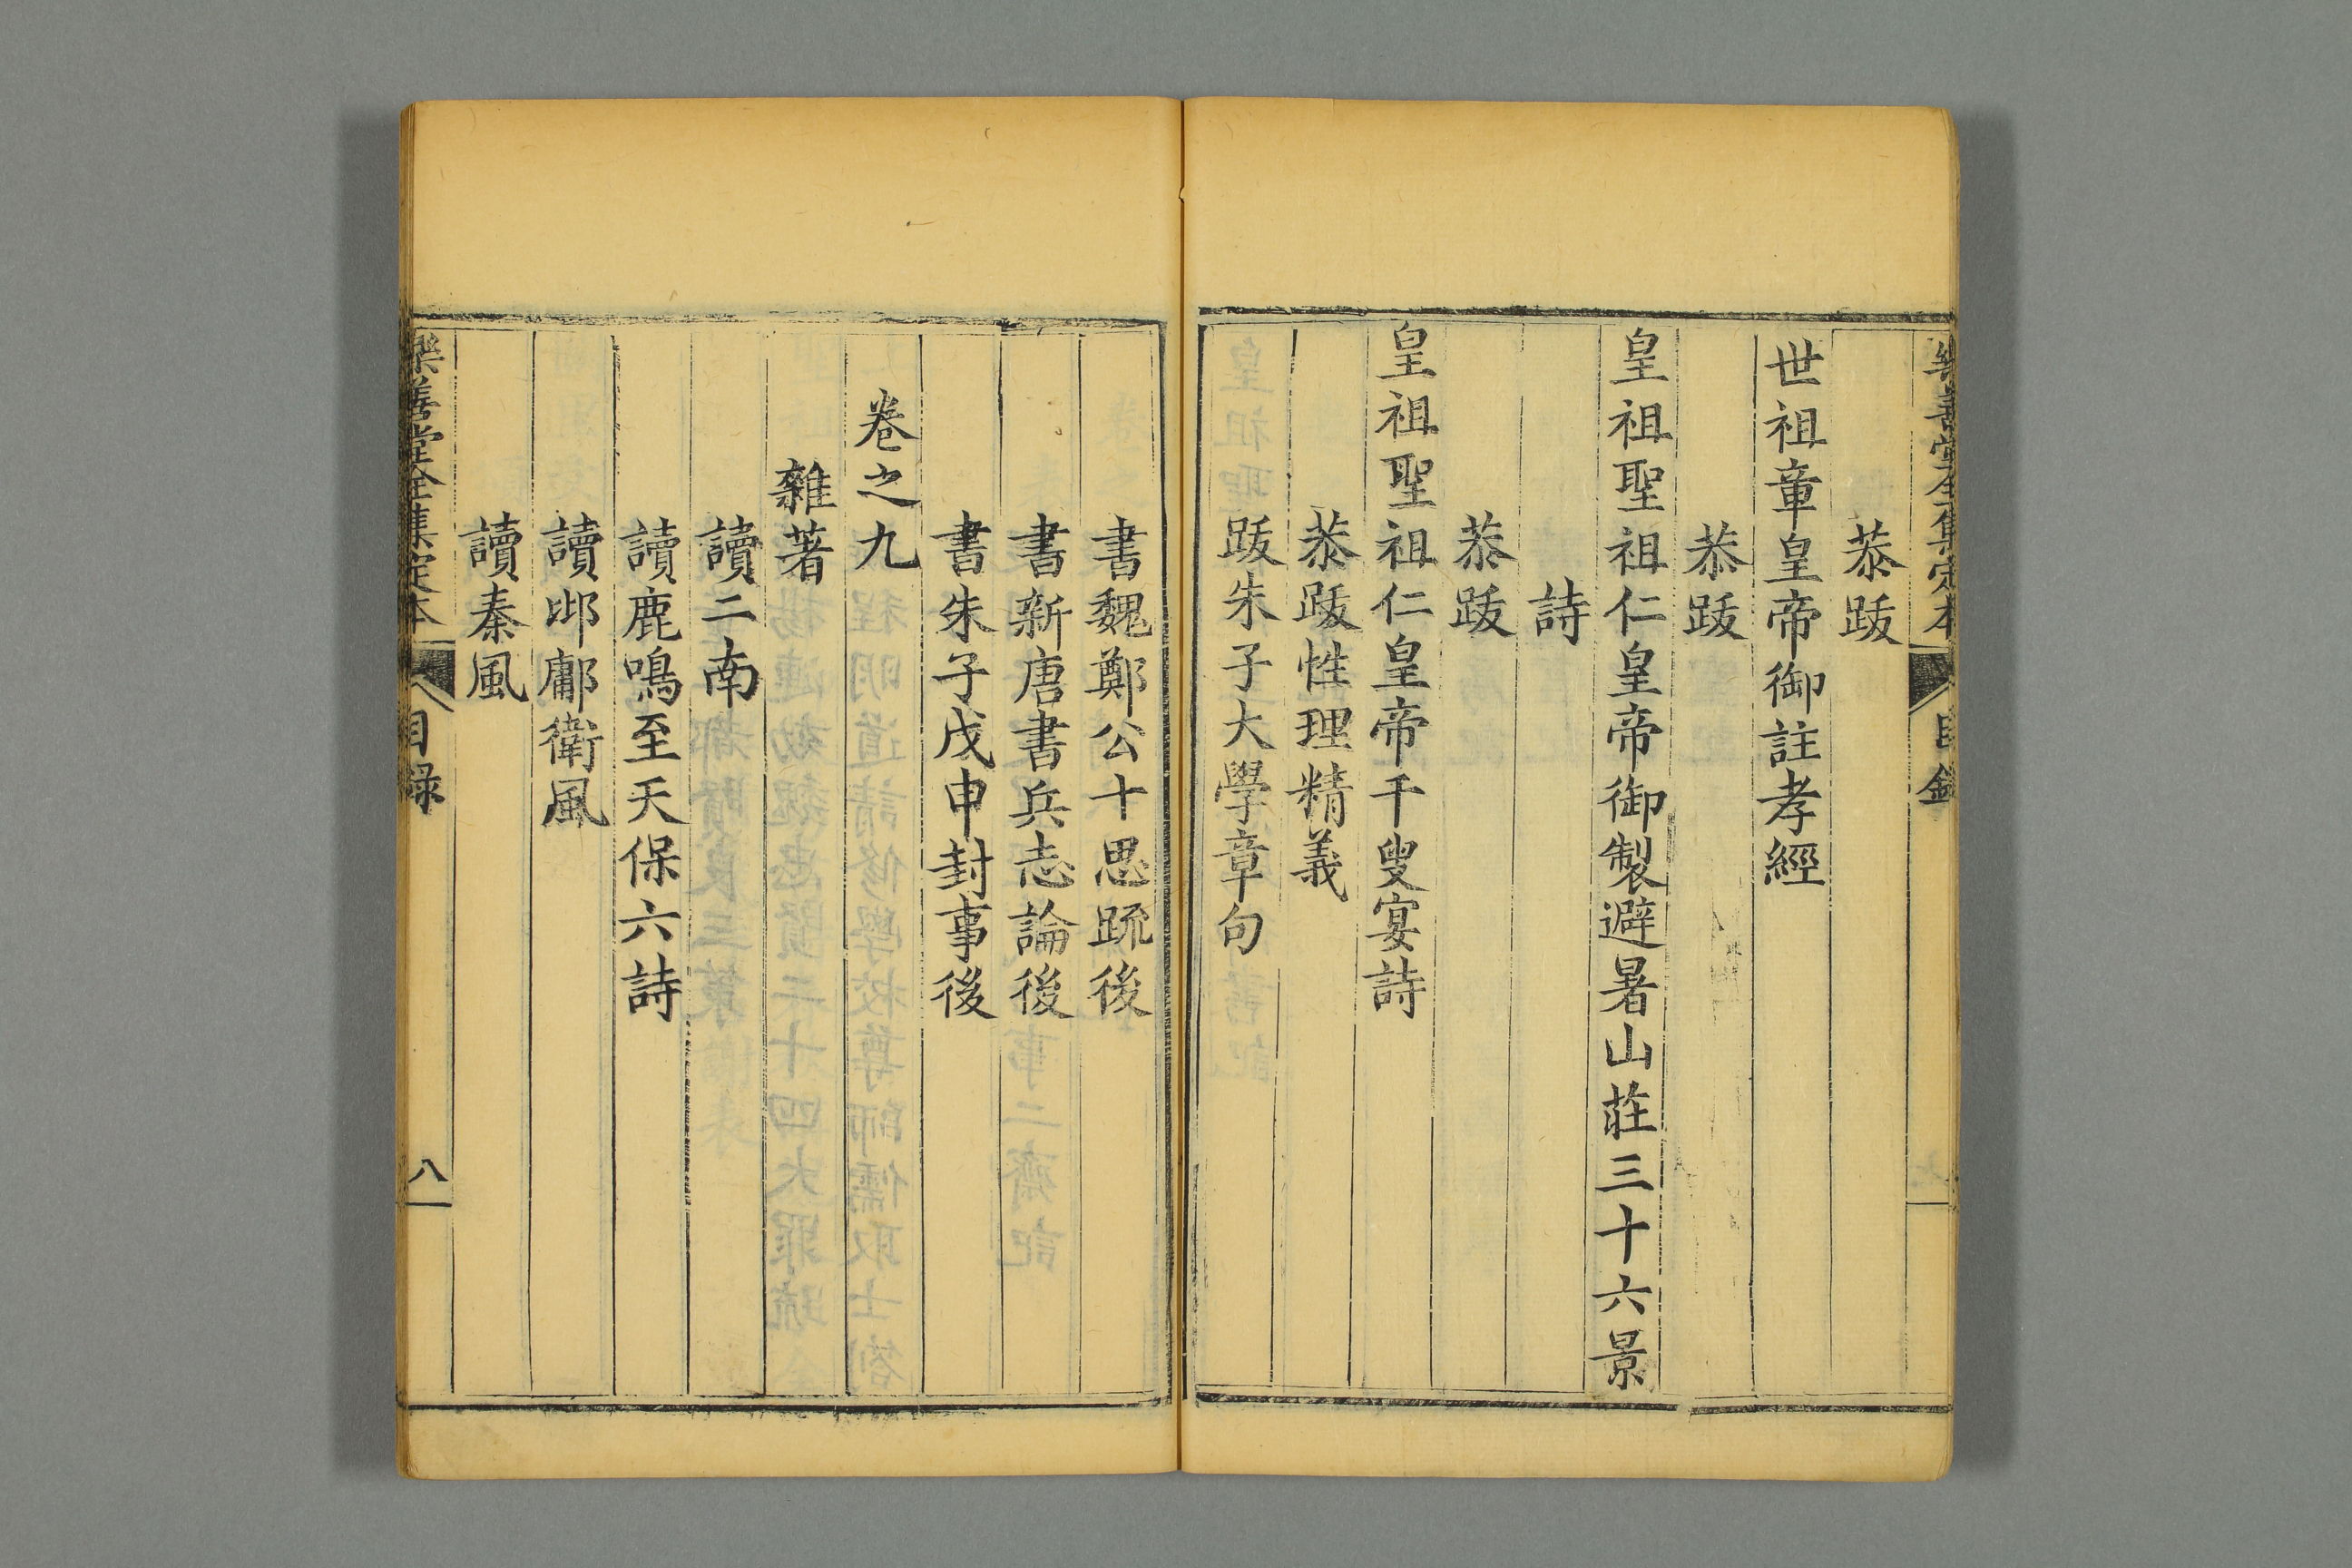 樂善堂全集定本 目錄
恭跋
世祖章皇帝御註孝經
恭跋
皇祖聖祖仁皇帝御製避暑山莊三十六景
詩
恭跋
皇祖聖祖仁皇帝千叟宴詩
恭跋性理精義
跋朱子大學章句
書魏鄭公十思疏後
書新唐書兵志論後
書朱子戊申封事後
卷之九
雜著
讀二南
讀鹿鳴至天保六詩
讀邶鄘衛風
讀秦風
樂善堂全集定本 目錄 八